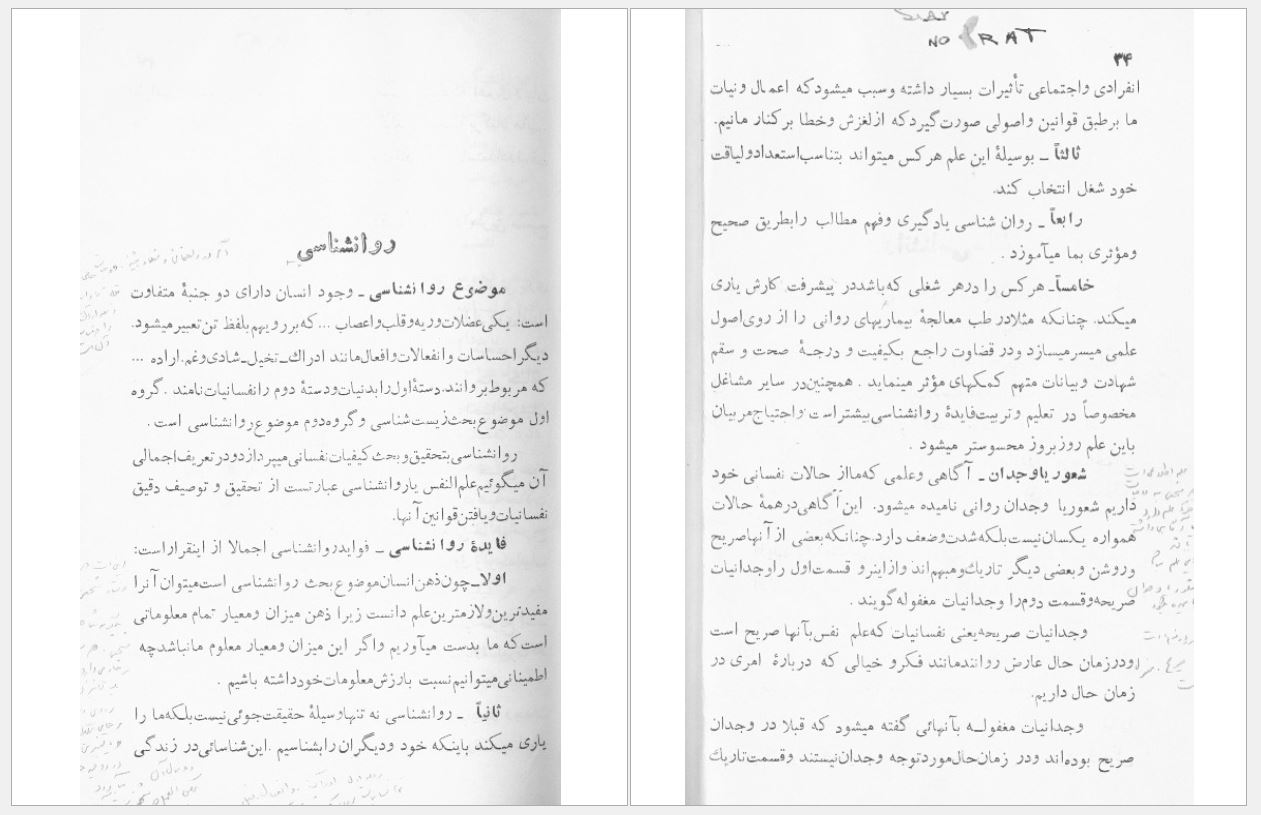 روانشناسی
موضوع روانشناسی ـ وجود انسان دارای دو جنبهٔ متفاوت
است: یکی عضلات وریه وقلب واعصاب ... که برروی‌هم بلفظ تن تعبیر میشود.
دیگر احساسات وانفعالات وافعال مانند ادراك ـ تخیل ـ شادی وغم. اراده ...
که مربوط بروانند. دستهٔ اول را بدنیات ودستهٔ دوم را نفسانیات نامند . گروه
اول موضوع بحث زیست شناسی وگروه دوم موضوع روانشناسی است .
روانشناسی بتحقیق وبحث کیفیات نفسانی میپردازد ودر تعریف اجمالی
آن میگوئیم علم النفس یاروانشناسی عبارتست از تحقیق و توصیف دقیق
نفسانیات ویافتن قوانین آنها.
فایدهٔ روانشناسی ـ فواید روانشناسی اجمالا از اینقرار است:
اولا ـ چون ذهن انسان موضوع بحث روانشناسی است میتوان آنرا
مفیدترین ولازمترین علم دانست زیرا ذهن میزان ومعیار تمام معلوماتی
است که ما بدست میآوریم واگر این میزان ومعیار معلوم مانباشد چه
اطمینانی میتوانیم نسبت بارزش معلومات خود داشته باشیم .
ثانیاً ـ روانشناسی نه تنها وسیلهٔ حقیقت جوئی نیست بلکه ما را
یاری میکند باینکه خود ودیگران را بشناسیم . این شناسائی در زندگی
NO RAT
۳۴
انفرادی واجتماعی تأثیرات بسیار داشته وسبب میشود که اعمال ونیات
ما برطبق قوانین واصولی صورت گیرد که از لغزش وخطا برکنار مانیم.
ثالثاً ـ بوسیلهٔ این علم هرکس میتواند بتناسب استعداد ولیاقت
خود شغل انتخاب کند.
رابعاً ـ روان شناسی یادگیری وفهم مطالب رابطریق صحیح
ومؤثری بما میآموزد .
خامساً ـ هرکس را درهر شغلی که باشد در پیشرفت کارش یاری
میکند. چنانکه مثلا در طب معالجهٔ بیماریهای روانی را از روی اصول
علمی میسر میسازد ودر قضاوت راجع بکیفیت و درجهٔ صحت و سقم
شهادت وبیانات متهم کمکهای مؤثر مینماید . همچنین در سایر مشاغل
مخصوصاً در تعلیم وتربیت فایدهٔ روانشناسی بیشتر است واحتیاج مربیان
باین علم روزبروز محسوستر میشود .
شعور یا وجدان ـ آگاهی وعلمی که ما از حالات نفسانی خود
داریم شعور یا وجدان روانی نامیده میشود. این آگاهی درهمهٔ حالات
همواره یکسان نیست بلکه شدت وضعف دارد. چنانکه بعضی از آنها صریح
وروشن وبعضی دیگر تاریك ومبهم اند وازاینرو قسمت اول را وجدانیات
صریحه وقسمت دوم را وجدانیات مغفوله گویند .
وجدانیات صریحه یعنی نفسانیات که علم نفس بآنها صریح است
ودرزمان حال عارض روانند مانند فکر و خیالی که دربارهٔ امری در
زمان حال داریم.
وجدانیات مغفولـه بآنهائی گفته میشود که قبلا در وجدان
صریح بوده اند ودر زمان حال مورد توجه وجدان نیستند وقسمت تاریك